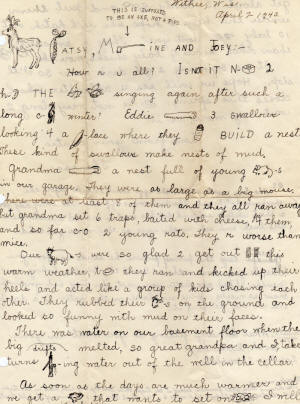 THIS IS SUPPOSED
TO BE AN AXE, NOT A PIPE
Withee, Wisc.
April 2, 1943
ATSY, M INE AND JOEY:-
How r u all? ISN IT N 2
h THE singing again after such a
long c winter? Eddie 3 swallows
looking 4 a -lace where they BUILD a nest.
These kind of swallows make nests of mud.
Grandma a nest full of young -s
in our garage. They were as large as a big mouse.
There were at least 8 of them and they all ran away
but grandma set 2 traps, baited with cheese, 4 them
and so far 2 young rats. They r worse than
mice.
Our were so glad 2 get out this
warm weather, they ran and kicked up their
heels and acted like a group of kids chasing each
other. They rubbed their on the ground and
looked so funny with mud on their faces.
There was water on our basement floor when the
big melted, so great grandpa and I, take
turns -ing water out of the well in the cellar.
As soon as the days are much warmer and
we get a that wants to set on I will